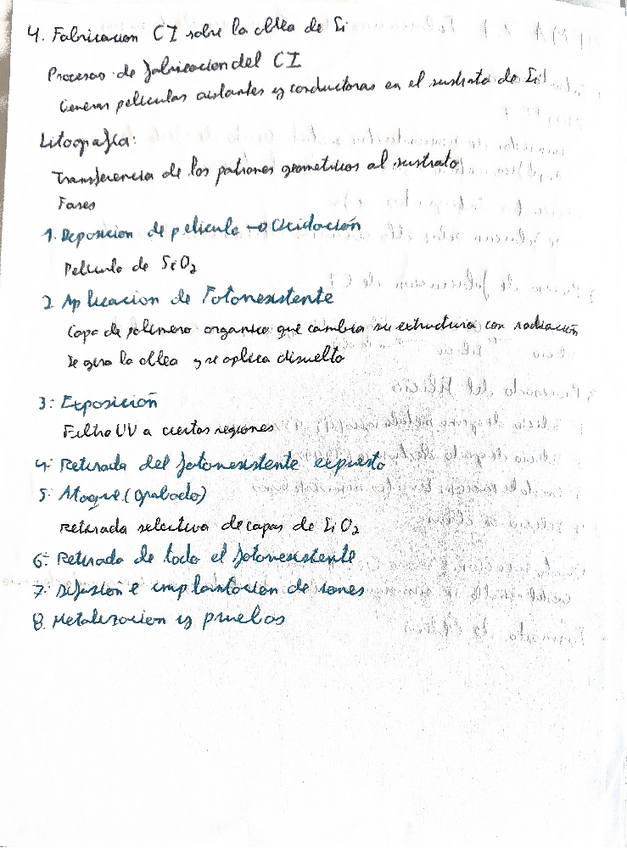 4. Fabricacion CI sobre la oblea de Si
Procesos de fabricacion del CI
Generar peliculas aislantes y conductoras en el sustrato de Si
Litografia:
Transferencia de los patrones geometricos al sustrato
Fases
1. Deposicion de pelicula → Oxidación
Pelicula de SiO2
2. Aplicacion de Fotorresistente
Capa de polimero organico que cambia su estructura con radiación
Se gira la oblea y se aplica disuelto
3: Exposición
Filtro UV a ciertas regiones
4: Retirada del fotorresistente expuesto
5: Ataque (Grabado)
Retirada selectiva de capas de SiO2
6: Retirada de todo el fotorresistente
7: Difusion e implantacion de iones
8. Metalizacion y pruebas